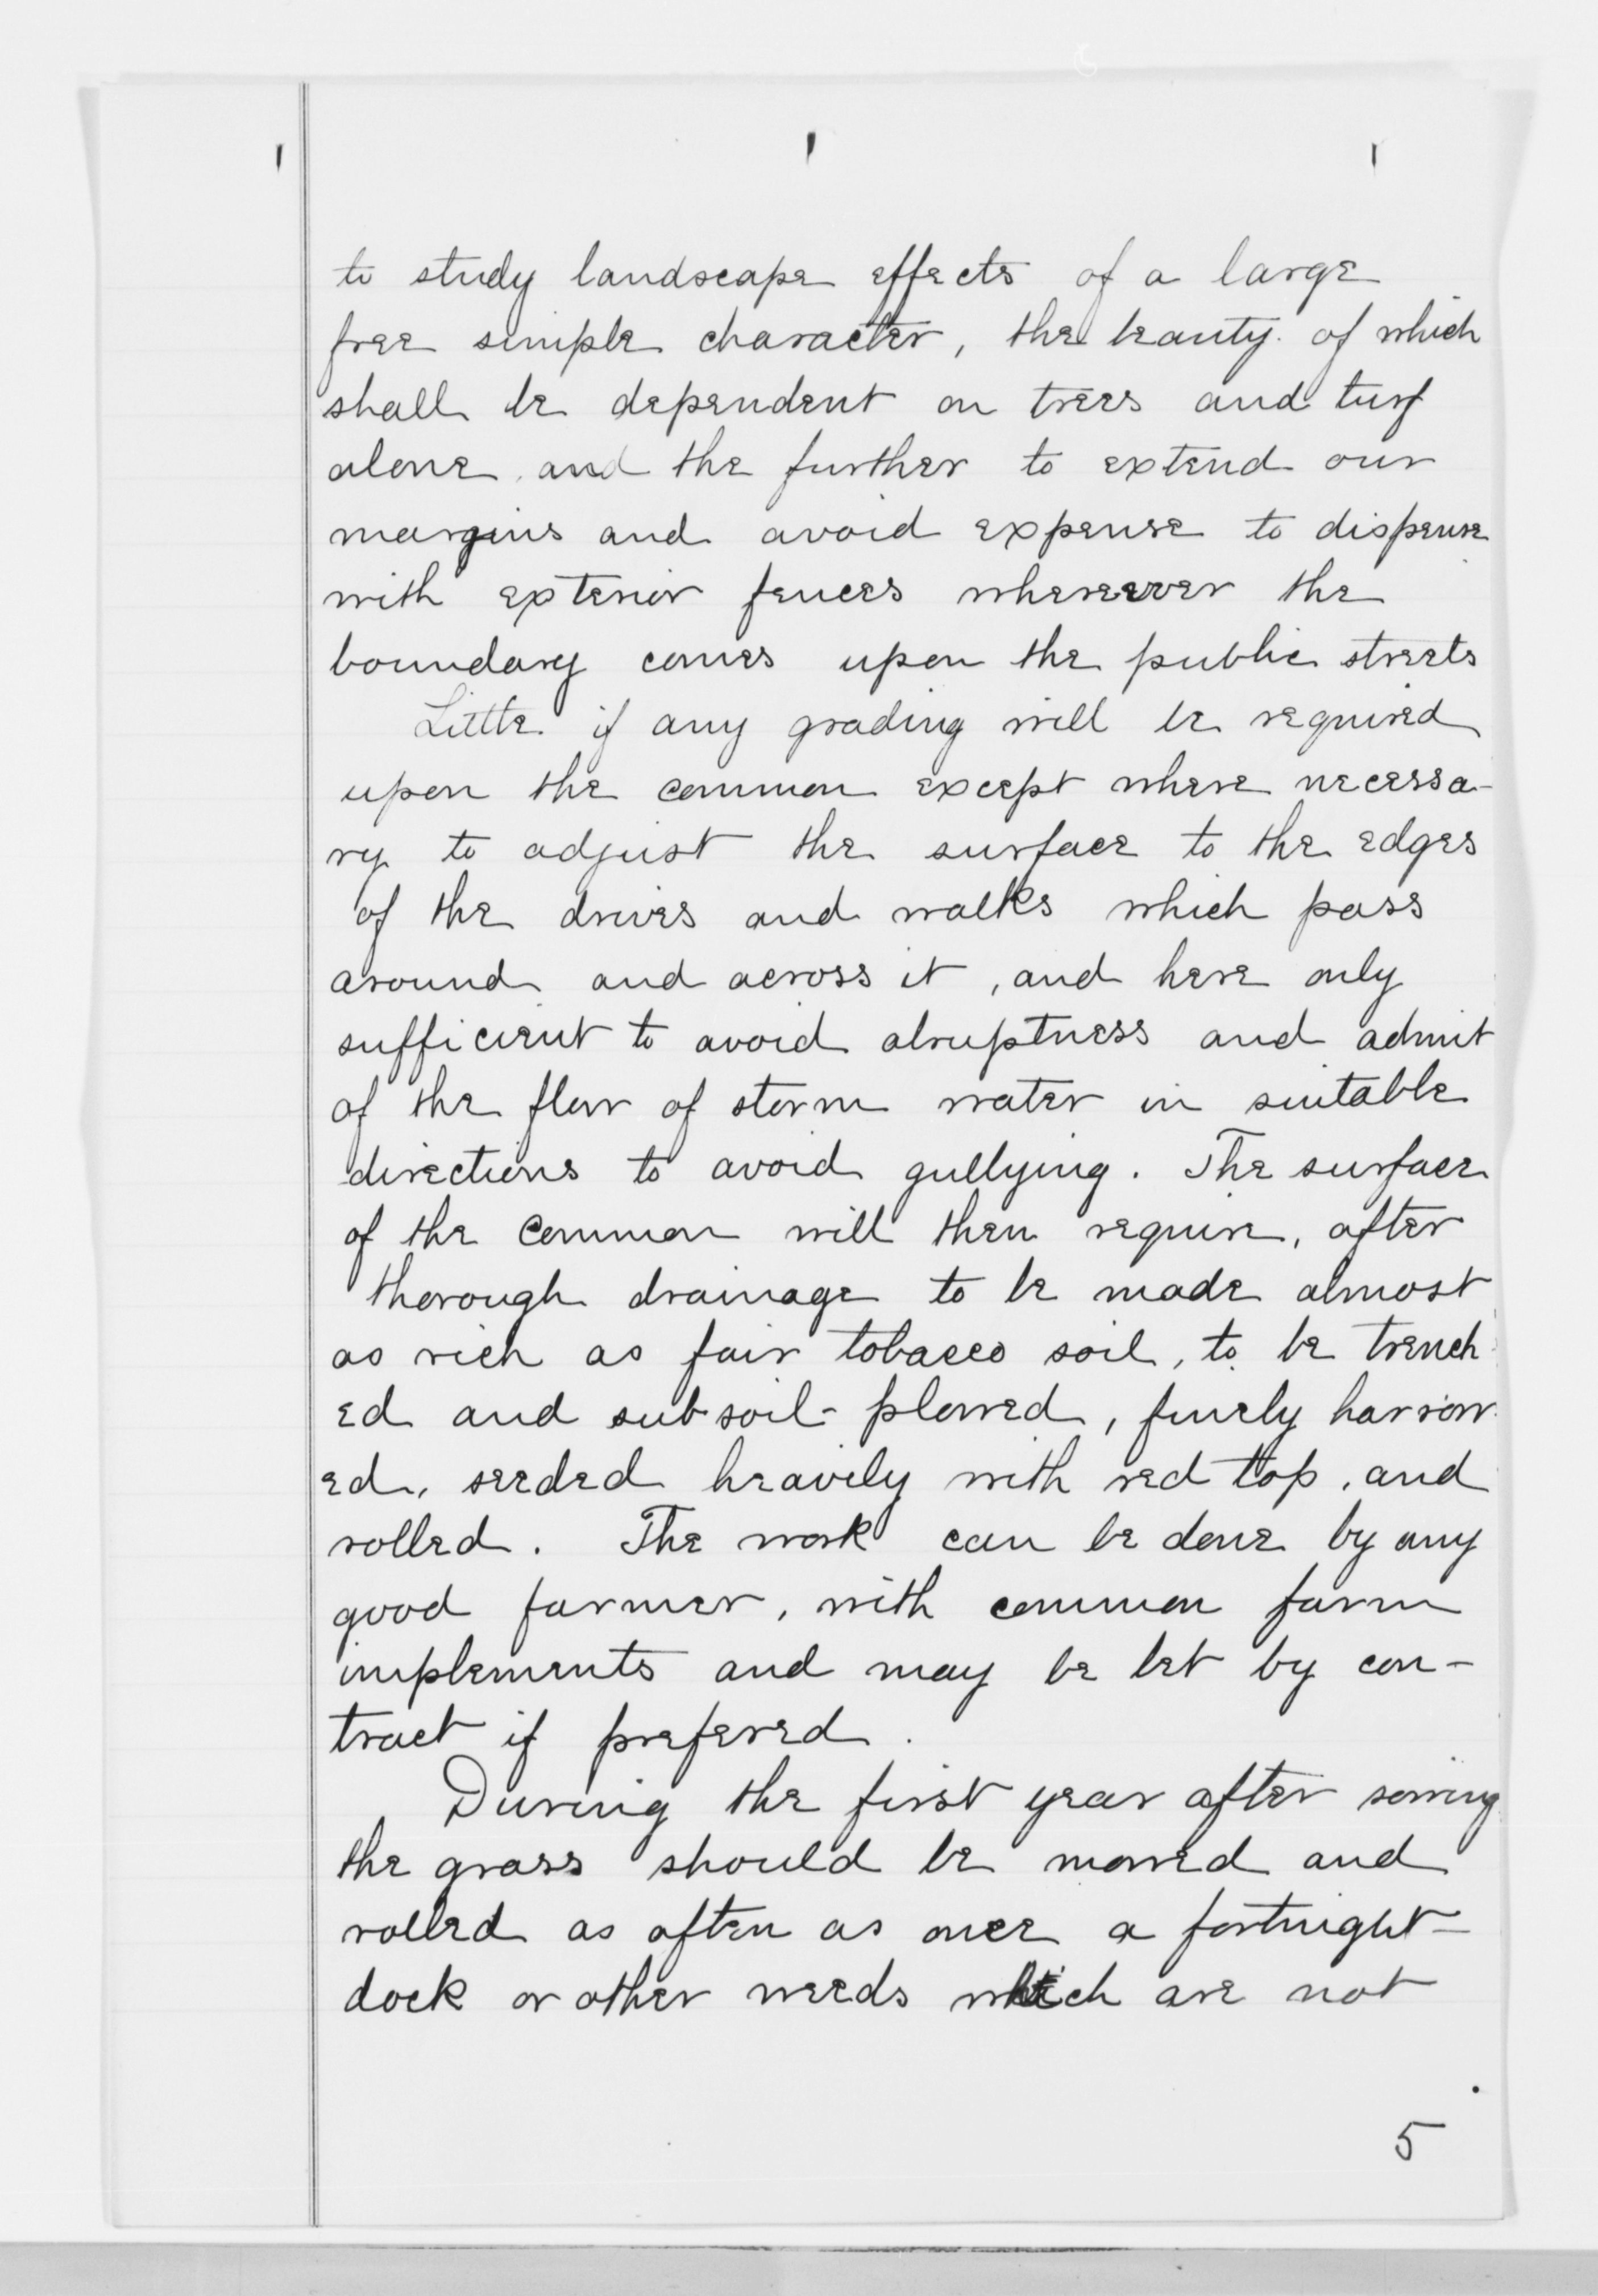 to study landscape effects of a large
free simple character, the beauty of which
shall be dependent on trees and turf
alone, and the further to extend our
margins and avoid expense to dispense
with exterior fences wherever the
boundary comes upon the public streets
Little if any grading will be required
upon the common except where necessa-
ry to adjust the surface to the edges
of the drives and walks which pass
around and across it, and here only
sufficient to avoid abruptness and admit
of the flow of storm water in suitable
directions to avoid gullying. The surface
of the Common will then require, after
thorough drainage to be made almost
as rich as fair tobacco soil, to be trench-
ed and subsoil-plowed, finely harrow-
ed, seeded heavily with red top, and
rolled. The work can be done by any
good farmer, with common farm
implements and may be let by con-
tract if prefered.
During the first year after sowing
the grass should be mowed and
rolled as often as once a fortnight-
dock or other weeds which are not
5